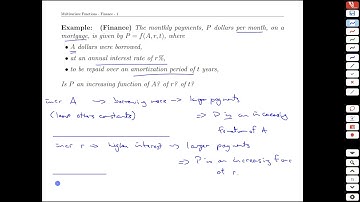 Multivariate Functions - Finance - 4
Example: (Finance) The monthly payments, P dollars per month, on a
mortgage, is given by P = f(A, r, t), where
• A dollars were borrowed,
• at an annual interest rate of r%,
• to be repaid over an amortization period of t years,
Is P an increasing function of A? of r? of t?
incr A → borrowing more → larger payments
(hold others constant) ⇒ P is an increasing
function of A
incr r → higher interest → larger payments
⇒ P is an increasing func
of r.